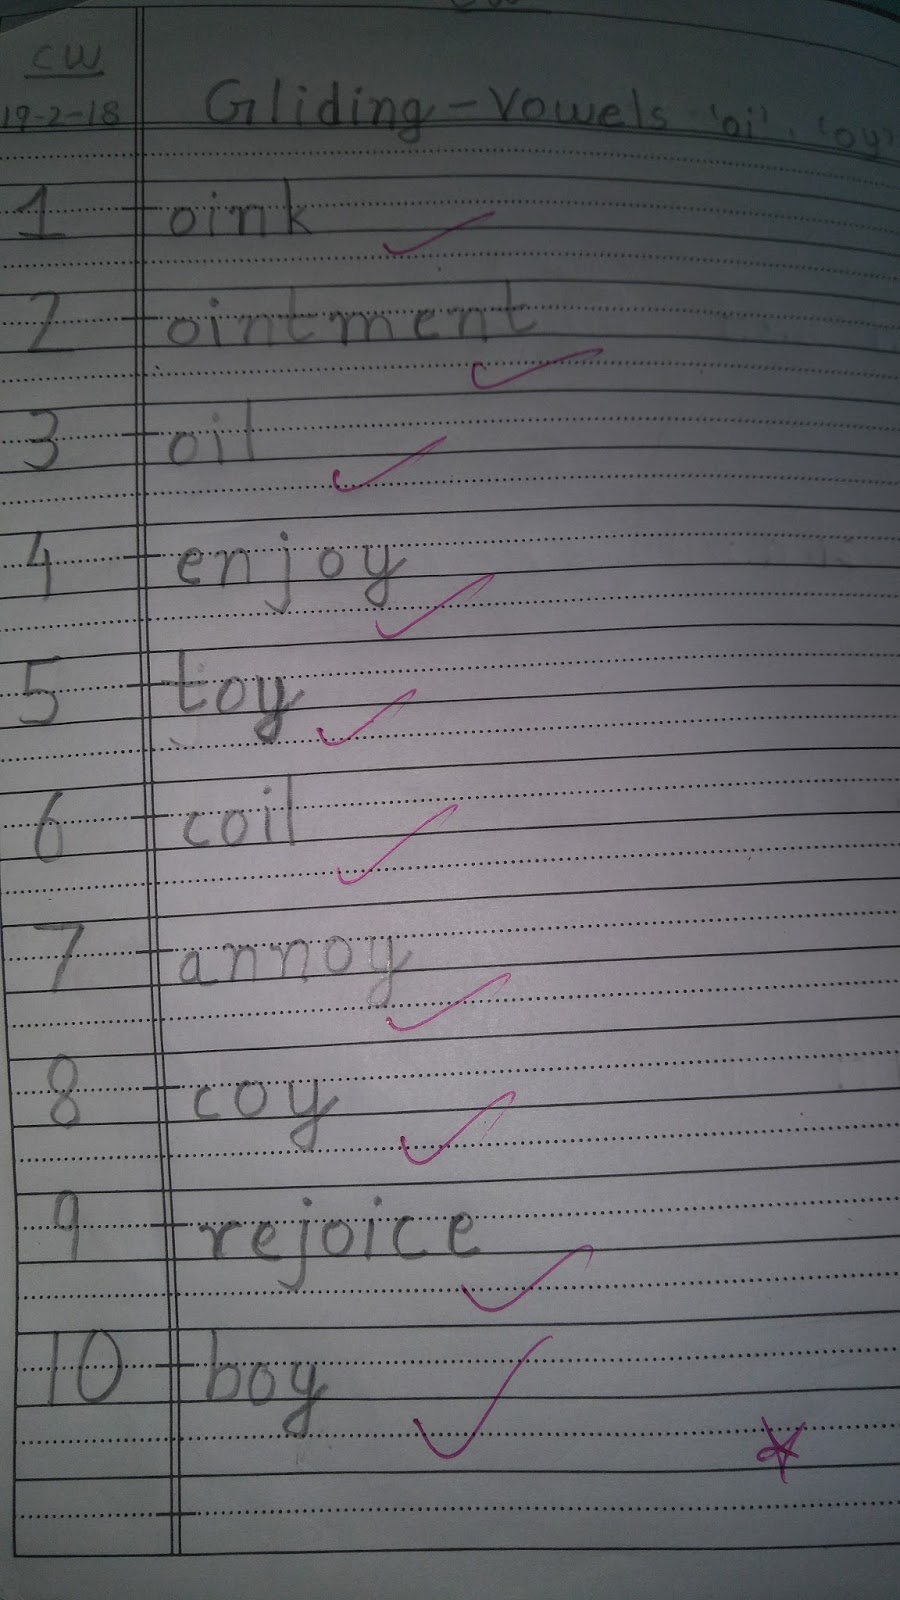 CW
19-2-18 Gliding - Vowels 'oi', 'oy'
1 oink
2 ointment
3 oil
4 enjoy
5 toy
6 coil
7 annoy
8 coy
9 rejoice
10 boy